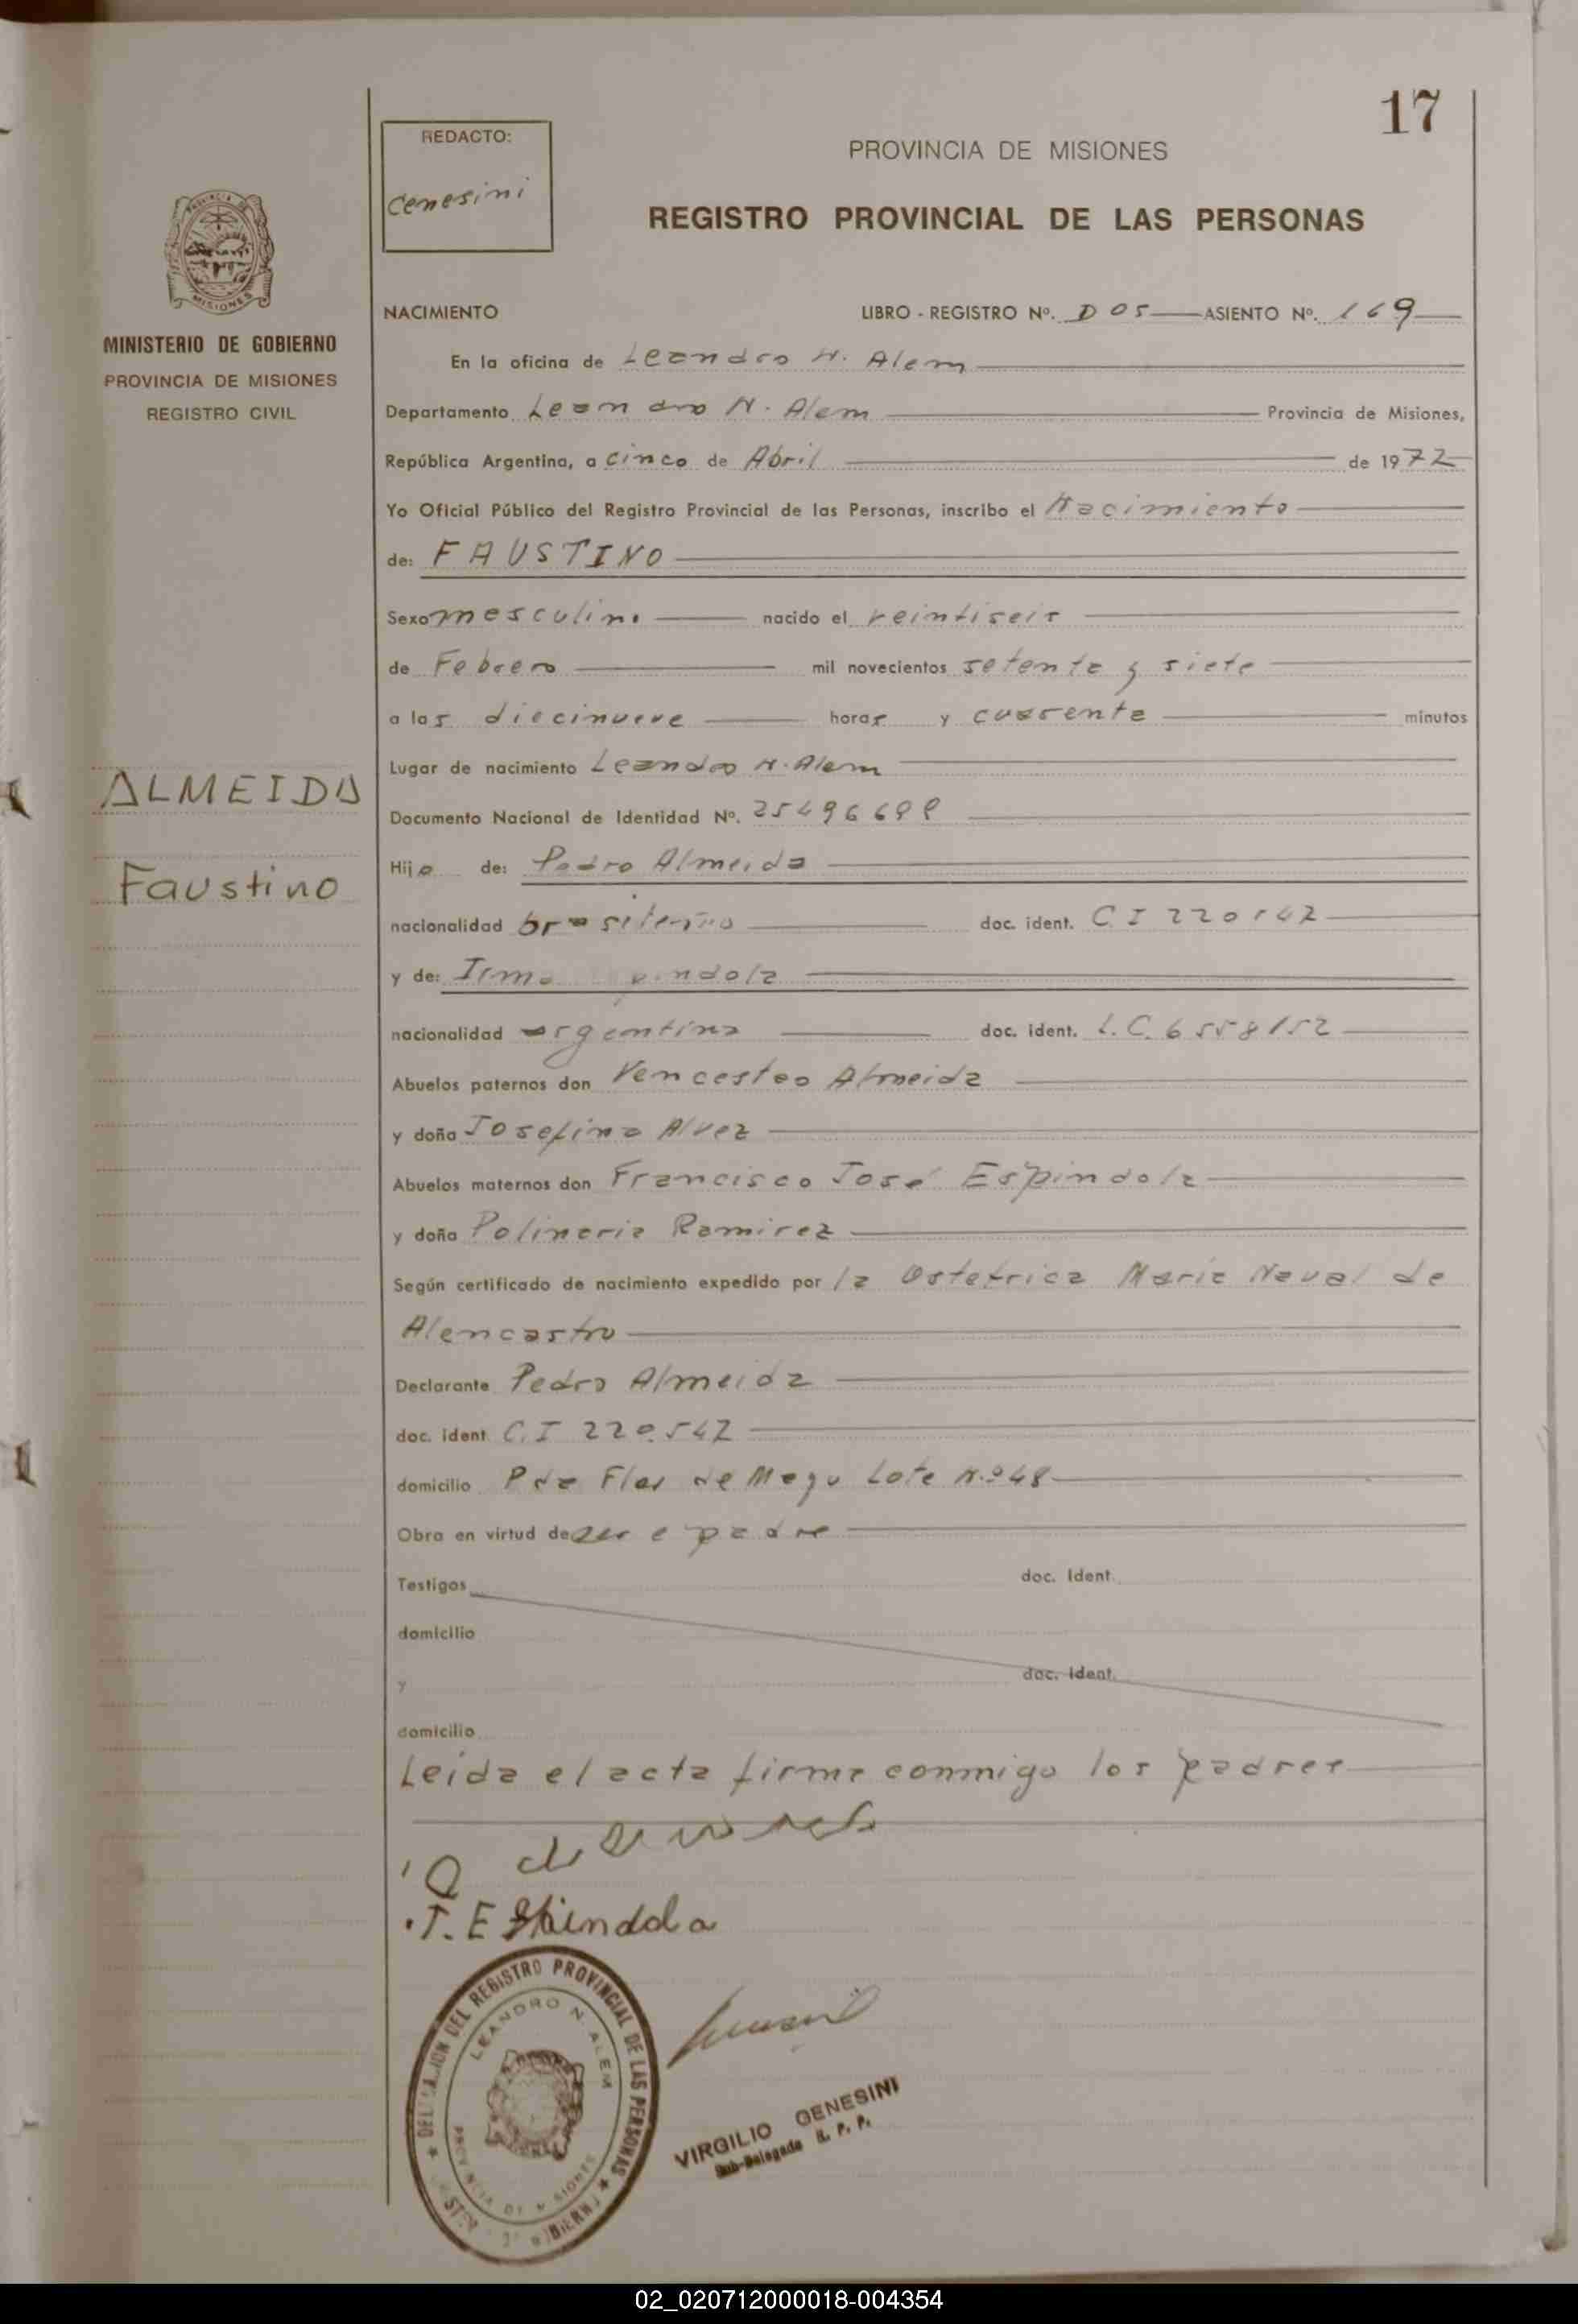 17
REDACTO:
Cenesini
PROVINCIA DE MISIONES
REGISTRO PROVINCIAL DE LAS PERSONAS
MINISTERIO DE GOBIERNO
PROVINCIA DE MISIONES
REGISTRO CIVIL
ALMEIDA
Faustino
NACIMIENTO LIBRO - REGISTRO Nº. D 05 ASIENTO Nº. 169
En la oficina de Leandro N. Alem
Departamento Leandro N. Alem Provincia de Misiones,
República Argentina, a cinco de Abril de 1977
Yo Oficial Público del Registro Provincial de las Personas, inscribo el Nacimiento
de: FAUSTINO
Sexo masculino nacido el veintiseis
de Febrero mil novecientos setenta y siete
a las diecinueve horas y cuarenta minutos
Lugar de nacimiento Leandro N. Alem
Documento Nacional de Identidad Nº.
Hijo de: Pedro Almeida
nacionalidad brasileño doc. ident. C.I 220547
y de: Irma
nacionalidad argentina doc. ident. L.C. 6558152
Abuelos paternos don Venceslao Almeida
y doña Josefina Alvez
Abuelos maternos don Francisco José Espindola
y doña Ramirez
Según certificado de nacimiento expedido por la Ostetrica Maria Naval de
Alencastro
Declarante Pedro Almeida
doc. ident. C.I 220.547
domicilio Pda Flor de Mayo Lote N.º 48
Obra en virtud de ser e padre
Testigos doc. Ident.
domicilio
y doc. Ident.
domicilio
Leida el acta firma conmigo los padres
I. Espindola
DEL REGISTRO PROVINCIAL DE LAS PERSONAS
LEANDRO N. ALEM
PROVINCIA DE MISIONES
VIRGILIO GENESINI
Sub-Delegado R. P. P.
02_020712000018-004354